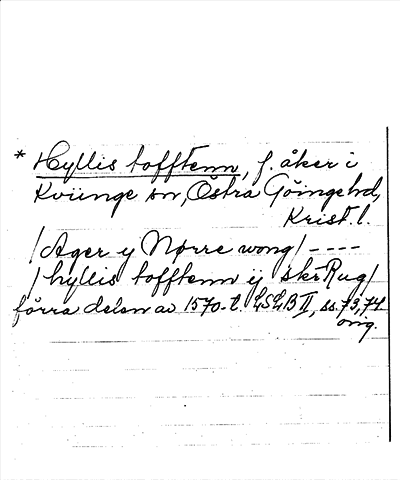 * Hyllis tofftenn, f. åker i
Kviinge sn, Östra Göinge hd,
Krist. l.
/Ager y Nørre wong/----
/hyllis tofftenn ij skr Rug/
förra delen av 1570-t. LSLB II, ss. 73, 74
orig.